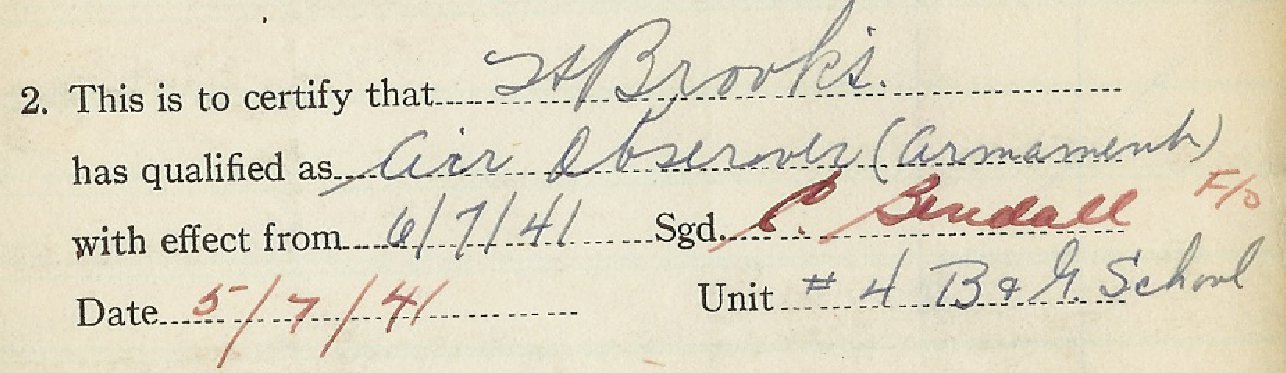 2. This is to certify that H Brooks.
has qualified as Air Observer (Armament)
with effect from 6/7/41 Sgd. C. Bendall F/O
Date 5/7/41 Unit # 4 B & G. School